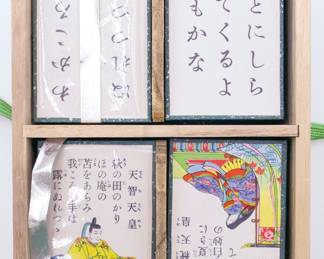 とにしら
てくるよ
もかな
わかころ
天智天皇
秋の田のかり
ほの庵の
苫をあらみ
我ころも手は
露にぬれつゝ
天皇
白妙の